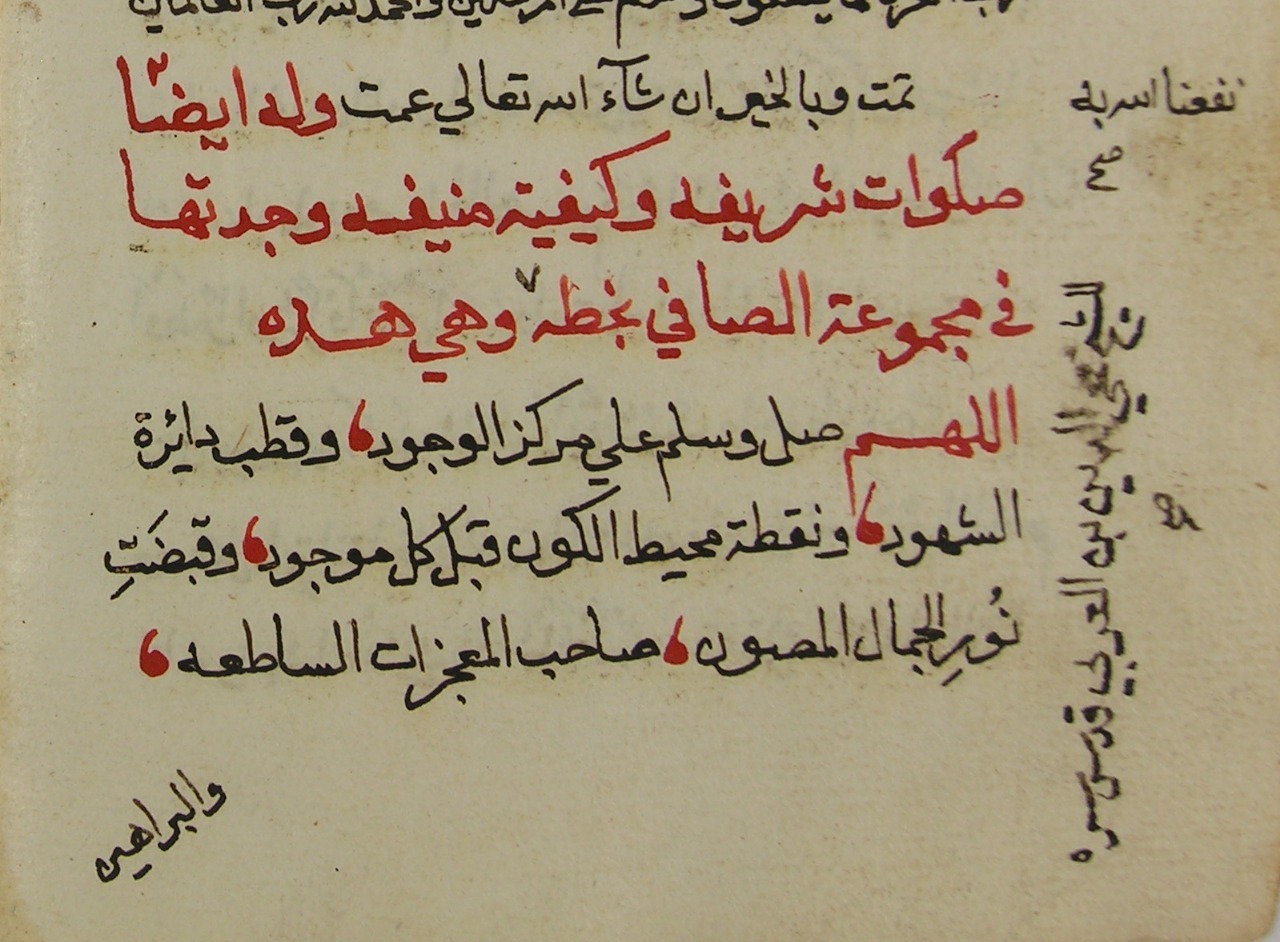 على المرسلين والحمد لله رب العالمين
تمت وبالخير ان شآء الله تعالي عمت وله ايضًا
صلوات شريفه وكيفية منيفه وجدتها
في مجموعة الصافي بخطه وهي هذه
اللهم صل وسلم علي مركز الوجود، وقطب دائرة
الشهود، ونقطة محيط الكون قبل كل موجود، وقبضَتِ
نُورِ الجمال المصون، صاحب المعجزات الساطعه،
والبراهين
نفعنا الله به
صح
محيي الدين بن العربي قدس سره